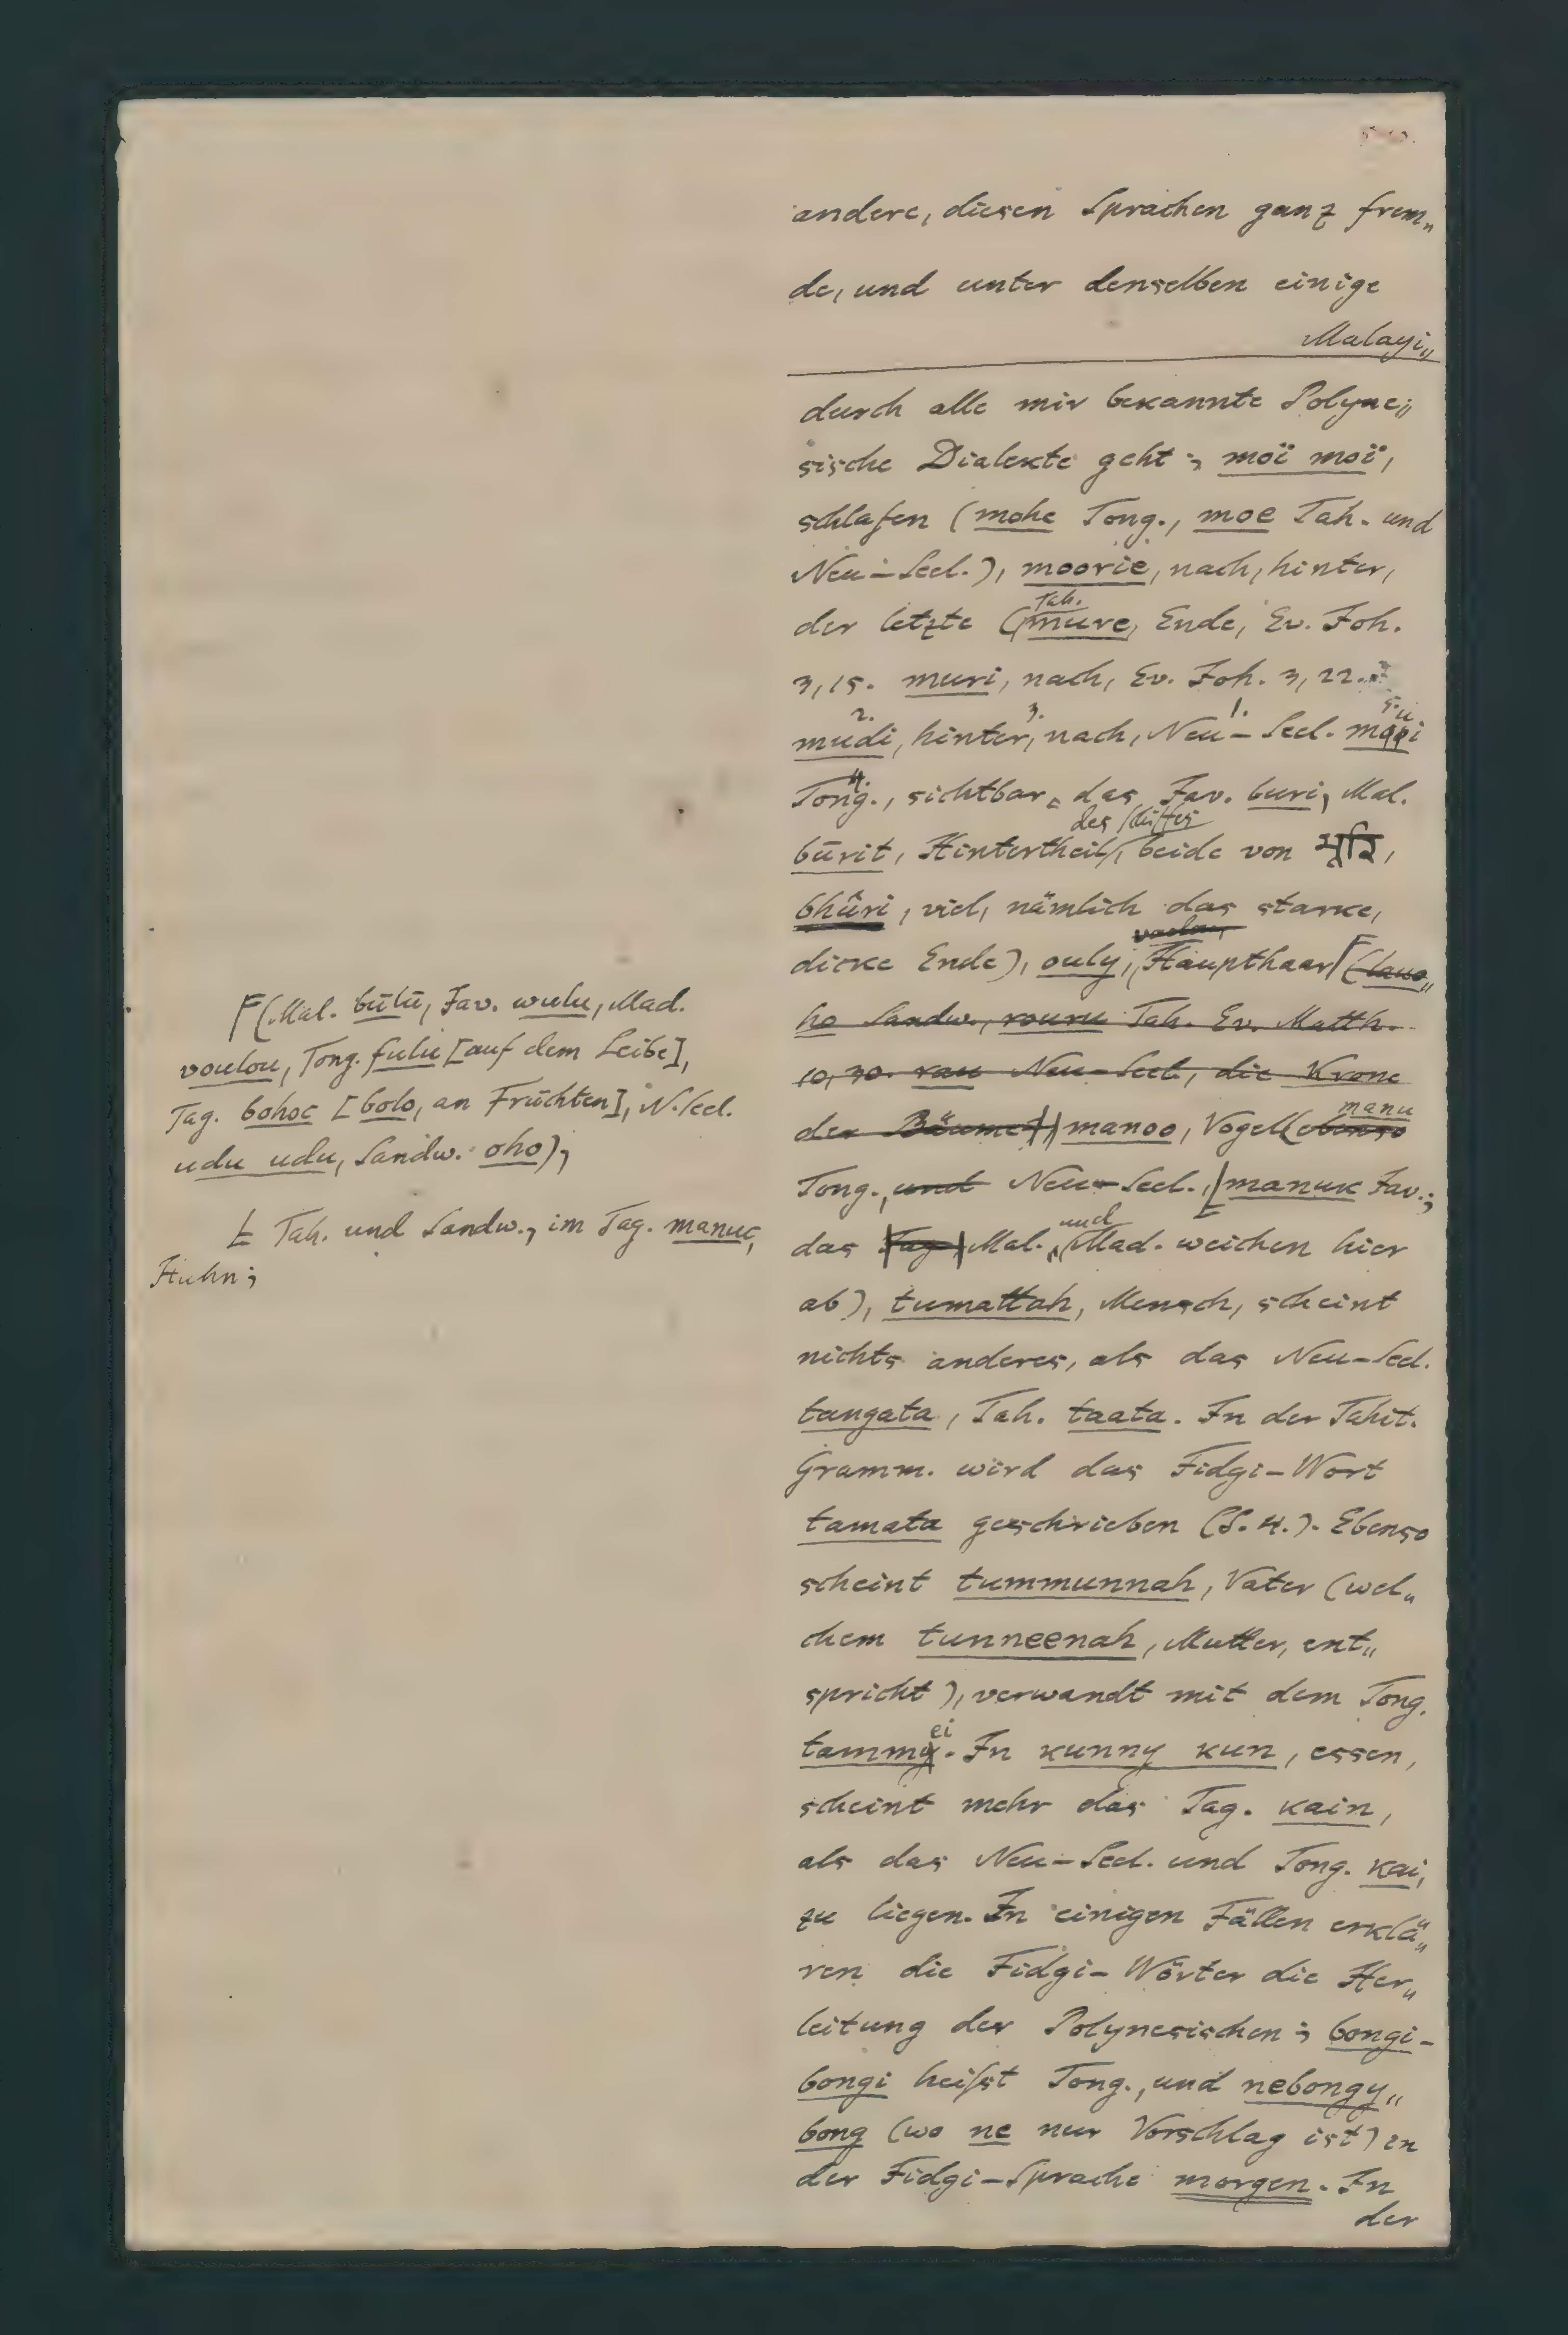 andere, diesen Sprachen ganz frem„
de, und unter denselben einige
Malayi„
durch alle mir bekannte Polyne„
sische Dialekte geht; moï moï,
schlafen (mohe Tong., moe Tah. und
Neu-Seel.), moorie, nach, hinter,
Tah.
der letzte (mure, Ende, Ev. Joh.
3,15. muri, nach, Ev. Joh. 3,22.
2. 3. 1. 5. u
mudi, hinter, nach, Neu-Seel. mooi
4.
Tong., sichtbar das Jav. buri, Mal.
des Schiffes
būrit, Hintertheil, beide von भूरि,
bhûri, viel, nämlich das starke,
dicke Ende), ouly, Haupthaar Γ (lauo„
ho Sandw., rouru Tah. Ev. Matth.
10,30. rau Neu-Seel., die Krone
manu
der Bäume), manoo, Vogel (ebenso
Tong., und Neu-Seel., manuk Jav.;
und
das Tag. Mal., Mad. weichen hier
ab), tumattah, Mensch, scheint
nichts anderes, als das Neu-Seel.
tangata, Tah. taata. In der Tahit.
Gramm. wird das Fidgi-Wort
tamata geschrieben (S. 4.). Ebenso
scheint tummunnah, Vater (wel„
chem tunneenah, Mutter, ent„
spricht), verwandt mit dem Tong.
ei
tammy. In kunny kun, essen,
scheint mehr das Tag. kain,
als das Neu-Seel. und Tong. kai,
zu liegen. In einigen Fällen erklä„
ren die Fidgi-Wörter die Her„
leitung der Polynesischen; bongi-
bongi heifst Tong., und nebongy„
bong (wo ne nur Vorschlag ist) in
der Fidgi-Sprache morgen. In
der
Γ(Mal. būlū, Jav. wulu, Mad.
voulou, Tong. fulu [auf dem Leibe],
Tag. bohoc [bolo, an Früchten], N.Seel.
udu udu, Sandw. oho);
Ł Tah. und Sandw., im Tag. manuc,
Huhn;